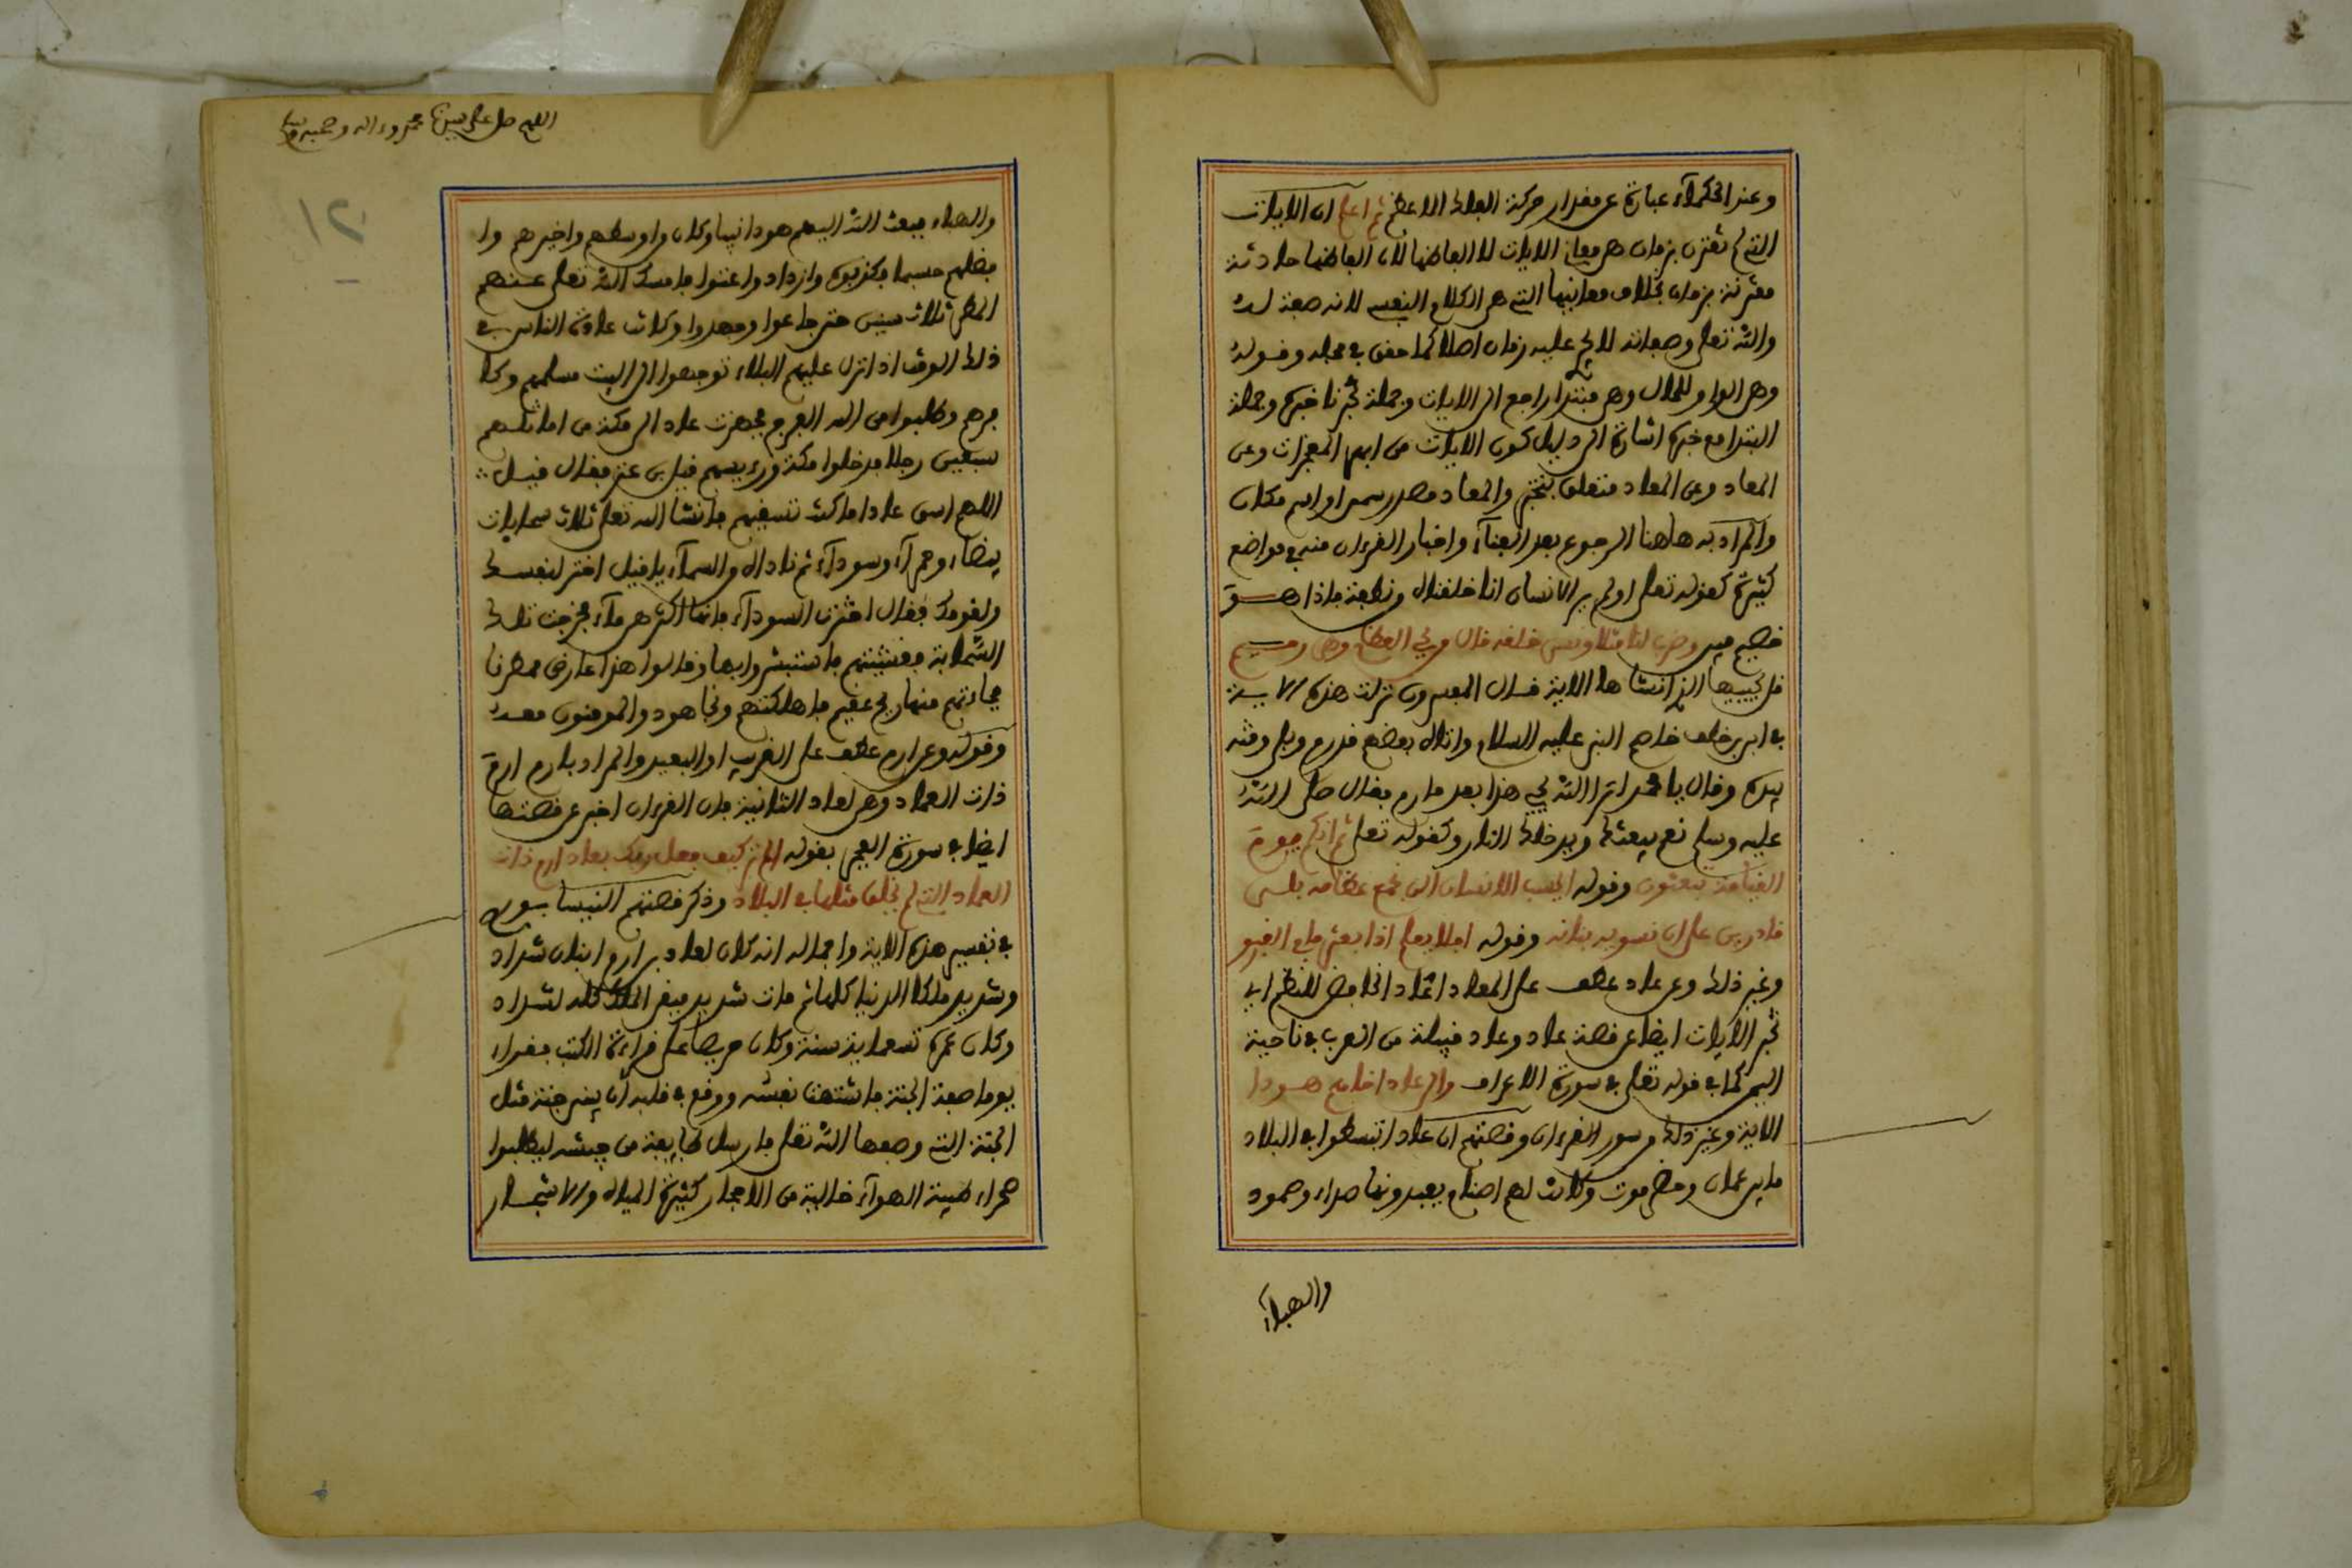 وعند الحكماء عبارة عن مقدار حركة الفلك الاعظم ثم اعلم ان الايات
التي لم تقترن بزمان هي معاني الايات لا الفاظها لان الفاظها حادثة
مقترنة بزمان بخلاف معانيها التي هي الكلام النفسي لانه صفة له
والله تعلى وصفاته لا يجر عليه زمان اصلا كما حقق في محله وقوله
وهي الواو للحال وهي مبتدا راجع الى الايات وجملة تخبرنا خبره وجملة
المبتدا مع خبره اشارة الى دليل كون الايات من ابهر المعجزات وعن
المعاد وعن المعاد متعلق بتخبر والمعاد مصدر ميمي او اسم مكان
والمراد به هاهنا الرجوع بعد الفناء واخبار القرءان منه في مواضع
كثيرة كقوله تعلى اولم ير الانسان انا خلقناه من نطفة فاذا هو
خصيم مبين وضرب لنا مثلا ونسي خلقه قال من يحي العظام وهي رميم
قل يحييها الذي انشاها الاية قال المفسرون نزلت هذه الاية
في ابي بن خلف خاصم النبي عليه السلام واتاه بعظم قد رم وبلي وفته
بيده وقال يا محمد اترا الله يحي هذا بعد ما رم فقال صلى الله
عليه وسلم نعم يبعثك ويدخلك النار وكقوله تعلى ثم انكم يوم
القيامة تبعثون وقوله ايحسب الانسان الن نجمع عظامه بلى
قادرين على ان نسوي بنانه وقوله افلا يعلم اذا بعثر ما في القبور
وغير ذلك وعن عاد عطف على المعاد اعاد الخافض للنظم اي
تخبر الايات ايضا عن قصة عاد وعاد قبيلة من العرب في ناحية
اليمن كما في قوله تعلى في سورة الاعراف والى عاد اخاهم هودا
الاية وغير ذلك من سور القرءان وقصتهم ان عادا تبسطوا في البلاد
ما بين عمان وحضرموت وكانت لهم اصنام يعبدونها صداء وصمود
والهباء
اللهم صل على نبينا محمد وءاله وصحبه
١٢
والهباء فبعث الله اليهم هودا نبيا وكان من اوسطهم واخيرهم وا
فضلهم حسبا فكذبوه وازدادوا عتوا فامسك الله تعلى عنهم
المطر ثلاث سنين حتى جاعوا وجهدوا وكانت عادة الناس في
ذلك الوقت اذا نزل عليهم البلاء توجهوا الى البيت مسلمهم وكا
فرهم وطلبوا من الله الفرج فجهزت عاد الى مكة من اماثلهم
سبعين رجلا فدخلوا مكة ورءيسهم قيل بن عنز فقال قيل
اللهم اسق عادا ما كنت تسقيهم فانشا الله تعلى ثلاث سحابات
بيضاء وحمراء وسوداء ثم ناداه من السماء يا قيل اختر لنفسك
ولقومك فقال اخترت السوداء فانها اكثرهن ماء فخرجت تلك
السحابة فغشيتهم فاستبشروا بها وقالوا هذا عارض ممطرنا
فجاءتهم منها ريح عقيم فاهلكتهم ونجا هود والمومنون معه
وقوله وعن ارم عطف على القريب او البعيد والمراد بارم ارم
ذات العماد وهي لعاد الثانية فان القرءان اخبر عن قصتها
ايضا في سورة الفجر بقوله الم تر كيف فعل ربك بعاد ارم ذات
العماد التي لم يخلق مثلها في البلاد وذكر قصتهم النيسابوري
في تفسير هذه الاية واجماله انه كان لعاد بن ارم ابنان شداد
وشديد ملكا الدنيا كلها ثم مات شديد فبقي الملك كله لشداد
وكان عمره تسعماية سنة وكان حريصا على قراءة الكتب فقرا
يوما صفة الجنة فاشتهت نفسه ووقع في قلبه ان يبني جنة مثل
الجنة التي وصفها الله تعلى فارسل طايفة من جيشه ليطلبوا
صحراء طيبة الهواء خالية من الاحجار كثيرة المياه والاشجار